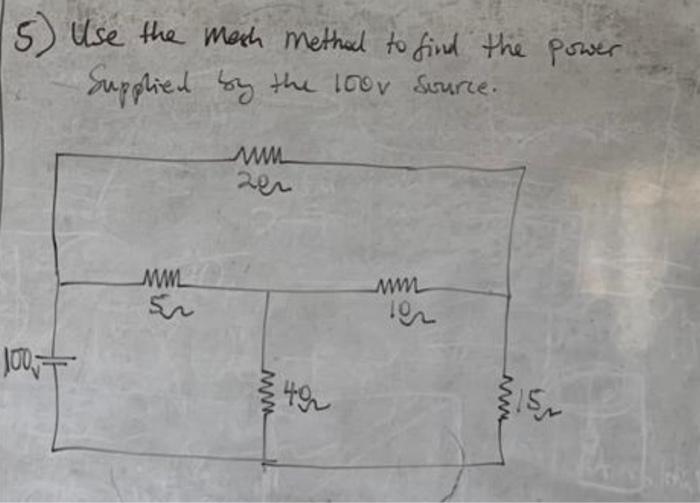 5) Use the mesh method to find the power
Supplied by the 100v source.
20Ω
5Ω
10Ω
100v
40Ω
15Ω